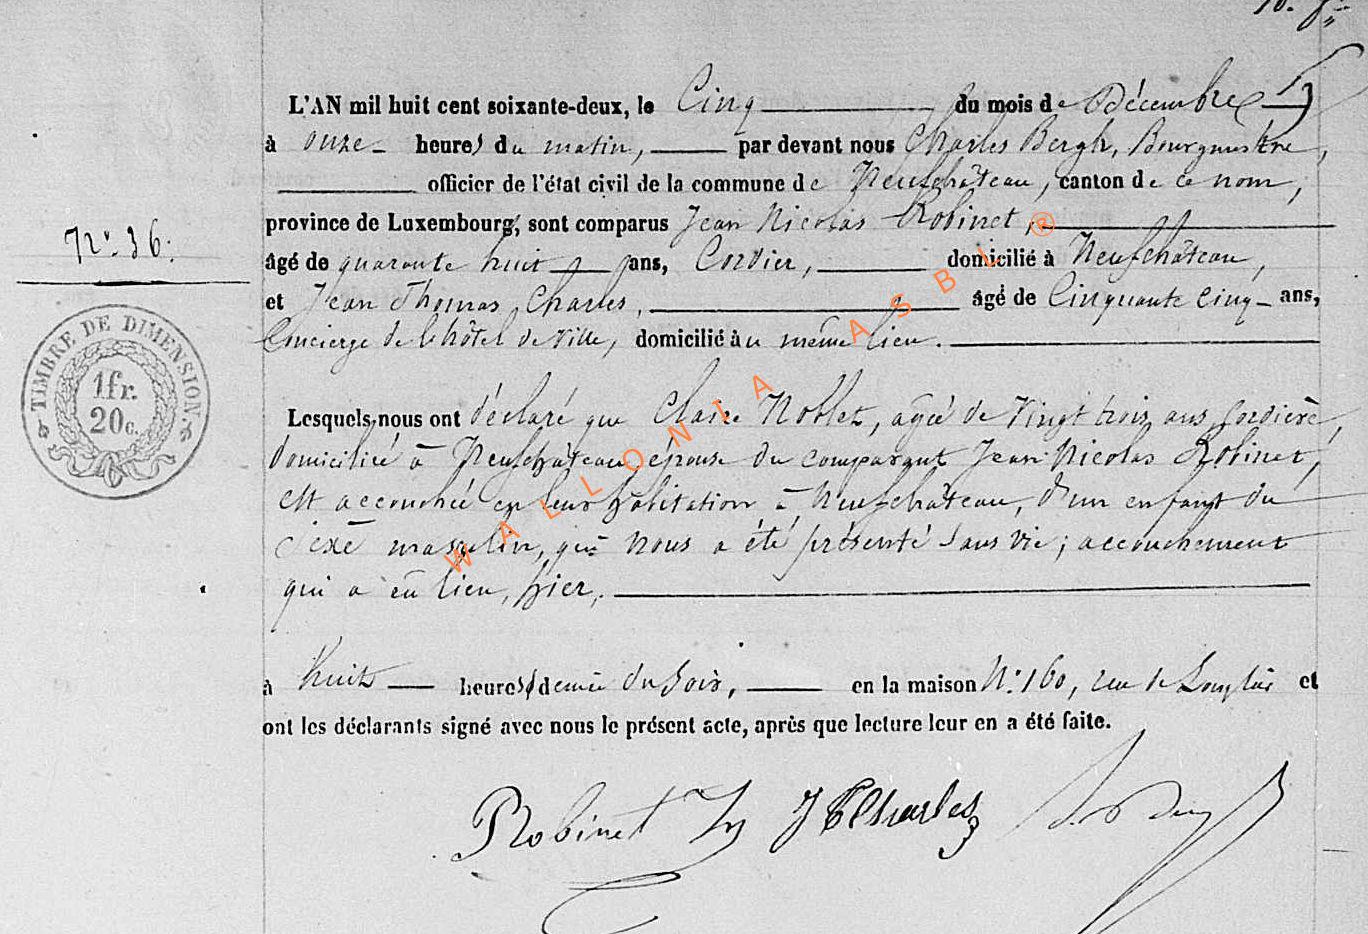 L'AN mil huit cent soixante-deux, le Cinq du mois de Décembre
à onze heures du matin, par devant nous Charles Bergh, Bourgmestre,
officier de l'état civil de la commune de Neufchâteau, canton de ce nom,
province de Luxembourg, sont comparus Jean Nicolas Robinet,
âgé de quarante huit ans, Cordier, domicilié à Neufchâteau,
et Jean Thomas Charles, âgé de Cinquante cinq ans,
Concierge de l'hôtel de Ville, domicilié au même lieu.
N° 36.
TIMBRE DE DIMENSION
1fr.
20c.
Lesquels nous ont déclaré que Claire Noblet, agée de Vingt trois ans, Cordière,
domiciliée à Neufchâteau, épouse du comparant Jean Nicolas Robinet,
est accouchée en leur habitation à Neufchâteau, d'un enfant du
sexe masculin, qui nous a été présenté sans vie; accouchement
qui a eu lieu, hier,
à huit heures demie du soir, en la maison N° 160, rue de et
ont les déclarants signé avec nous le présent acte, après que lecture leur en a été faite.
Robinet JTCharles
WALLONIA ASBL ®